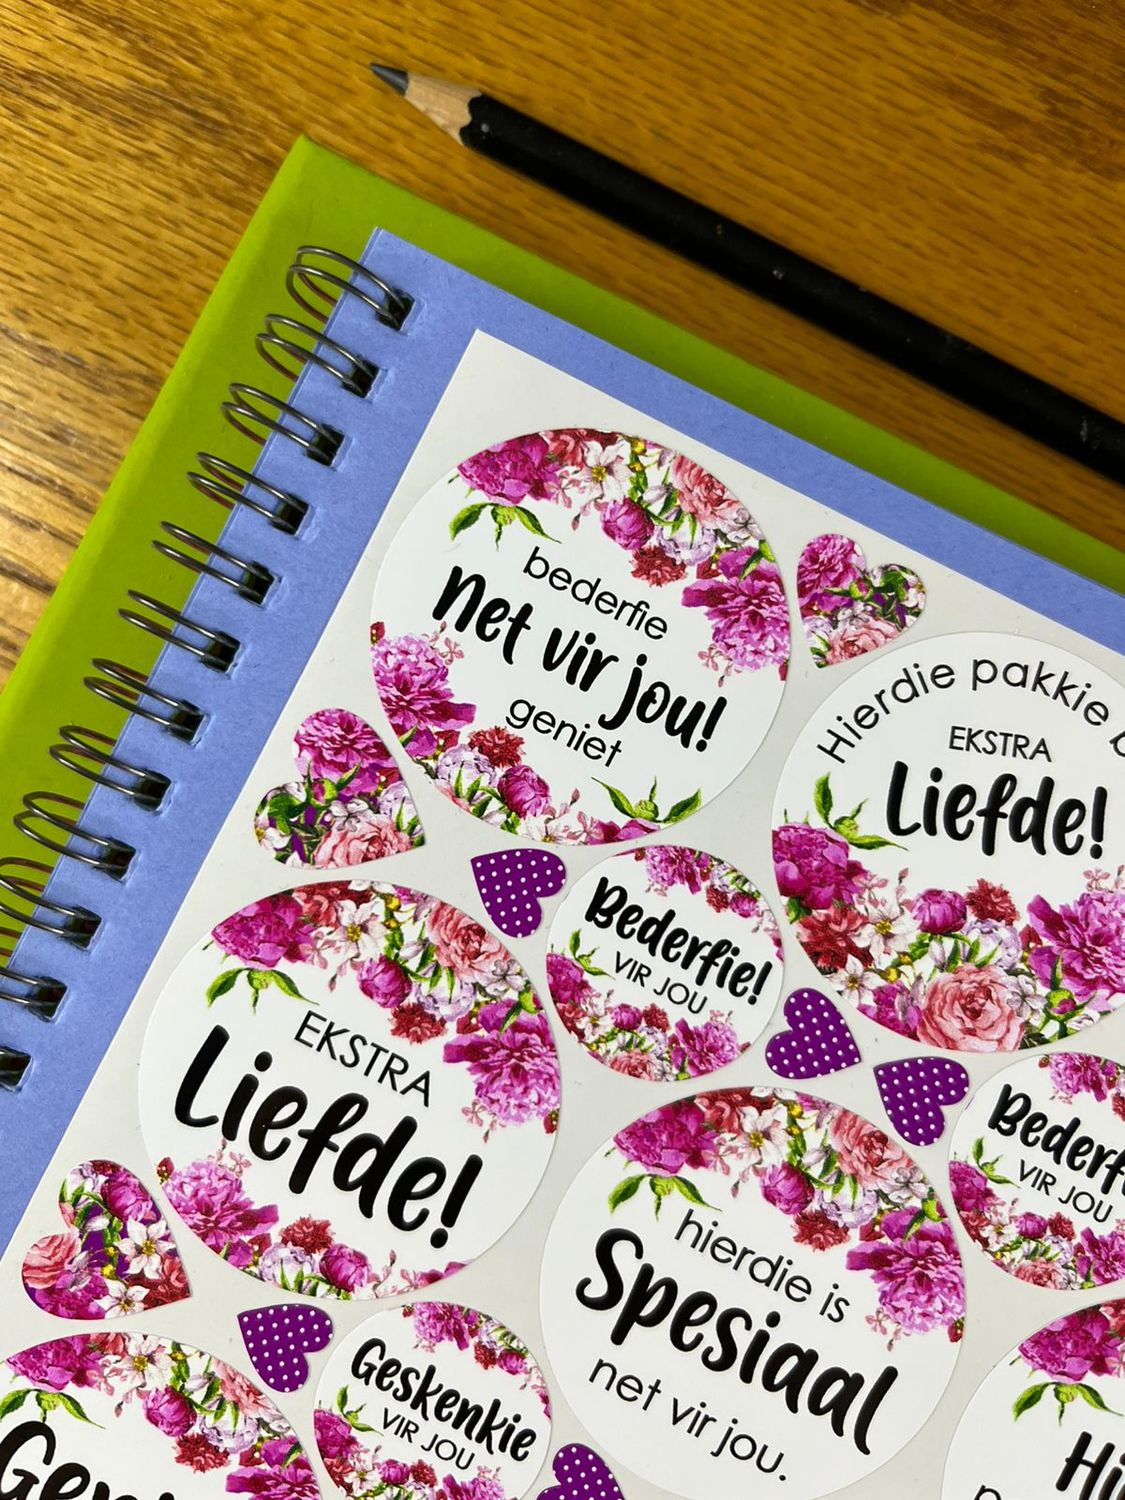 bederfie
Net vir jou!
geniet
Hierdie pakkie
EKSTRA
Liefde!
Bederfie!
VIR JOU
EKSTRA
Liefde!
VIR JOU
hierdie is
Spesiaal
net vir jou.
Geskenkie
VIR JOU